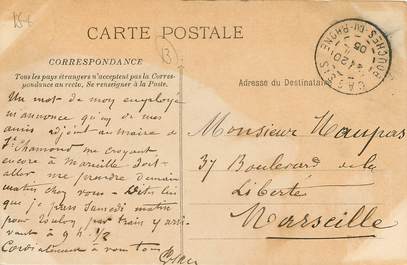 CARTE POSTALE
CORRESPONDANCE
Tous les pays étrangers n'acceptent pas la Corres-
pondance au recto, Se renseigner à la Poste.
Adresse du Destinataire
CASSIS
BOUCHES-DU-RHÔNE
05
13
Un mot de mon employé
m'annonce qu'un de mes
amis adjoint au maire de
St Chamond me croyant
encore à Marseille doit
aller me prendre demain
matin chez vous - Dites lui
que je pars Samedi matin
pour Toulon par train y arri-
vant à 9 h 1/2
Cordialement à vous tous
Monsieur Maupas
37 Boulevard de la
Liberté
Marseille